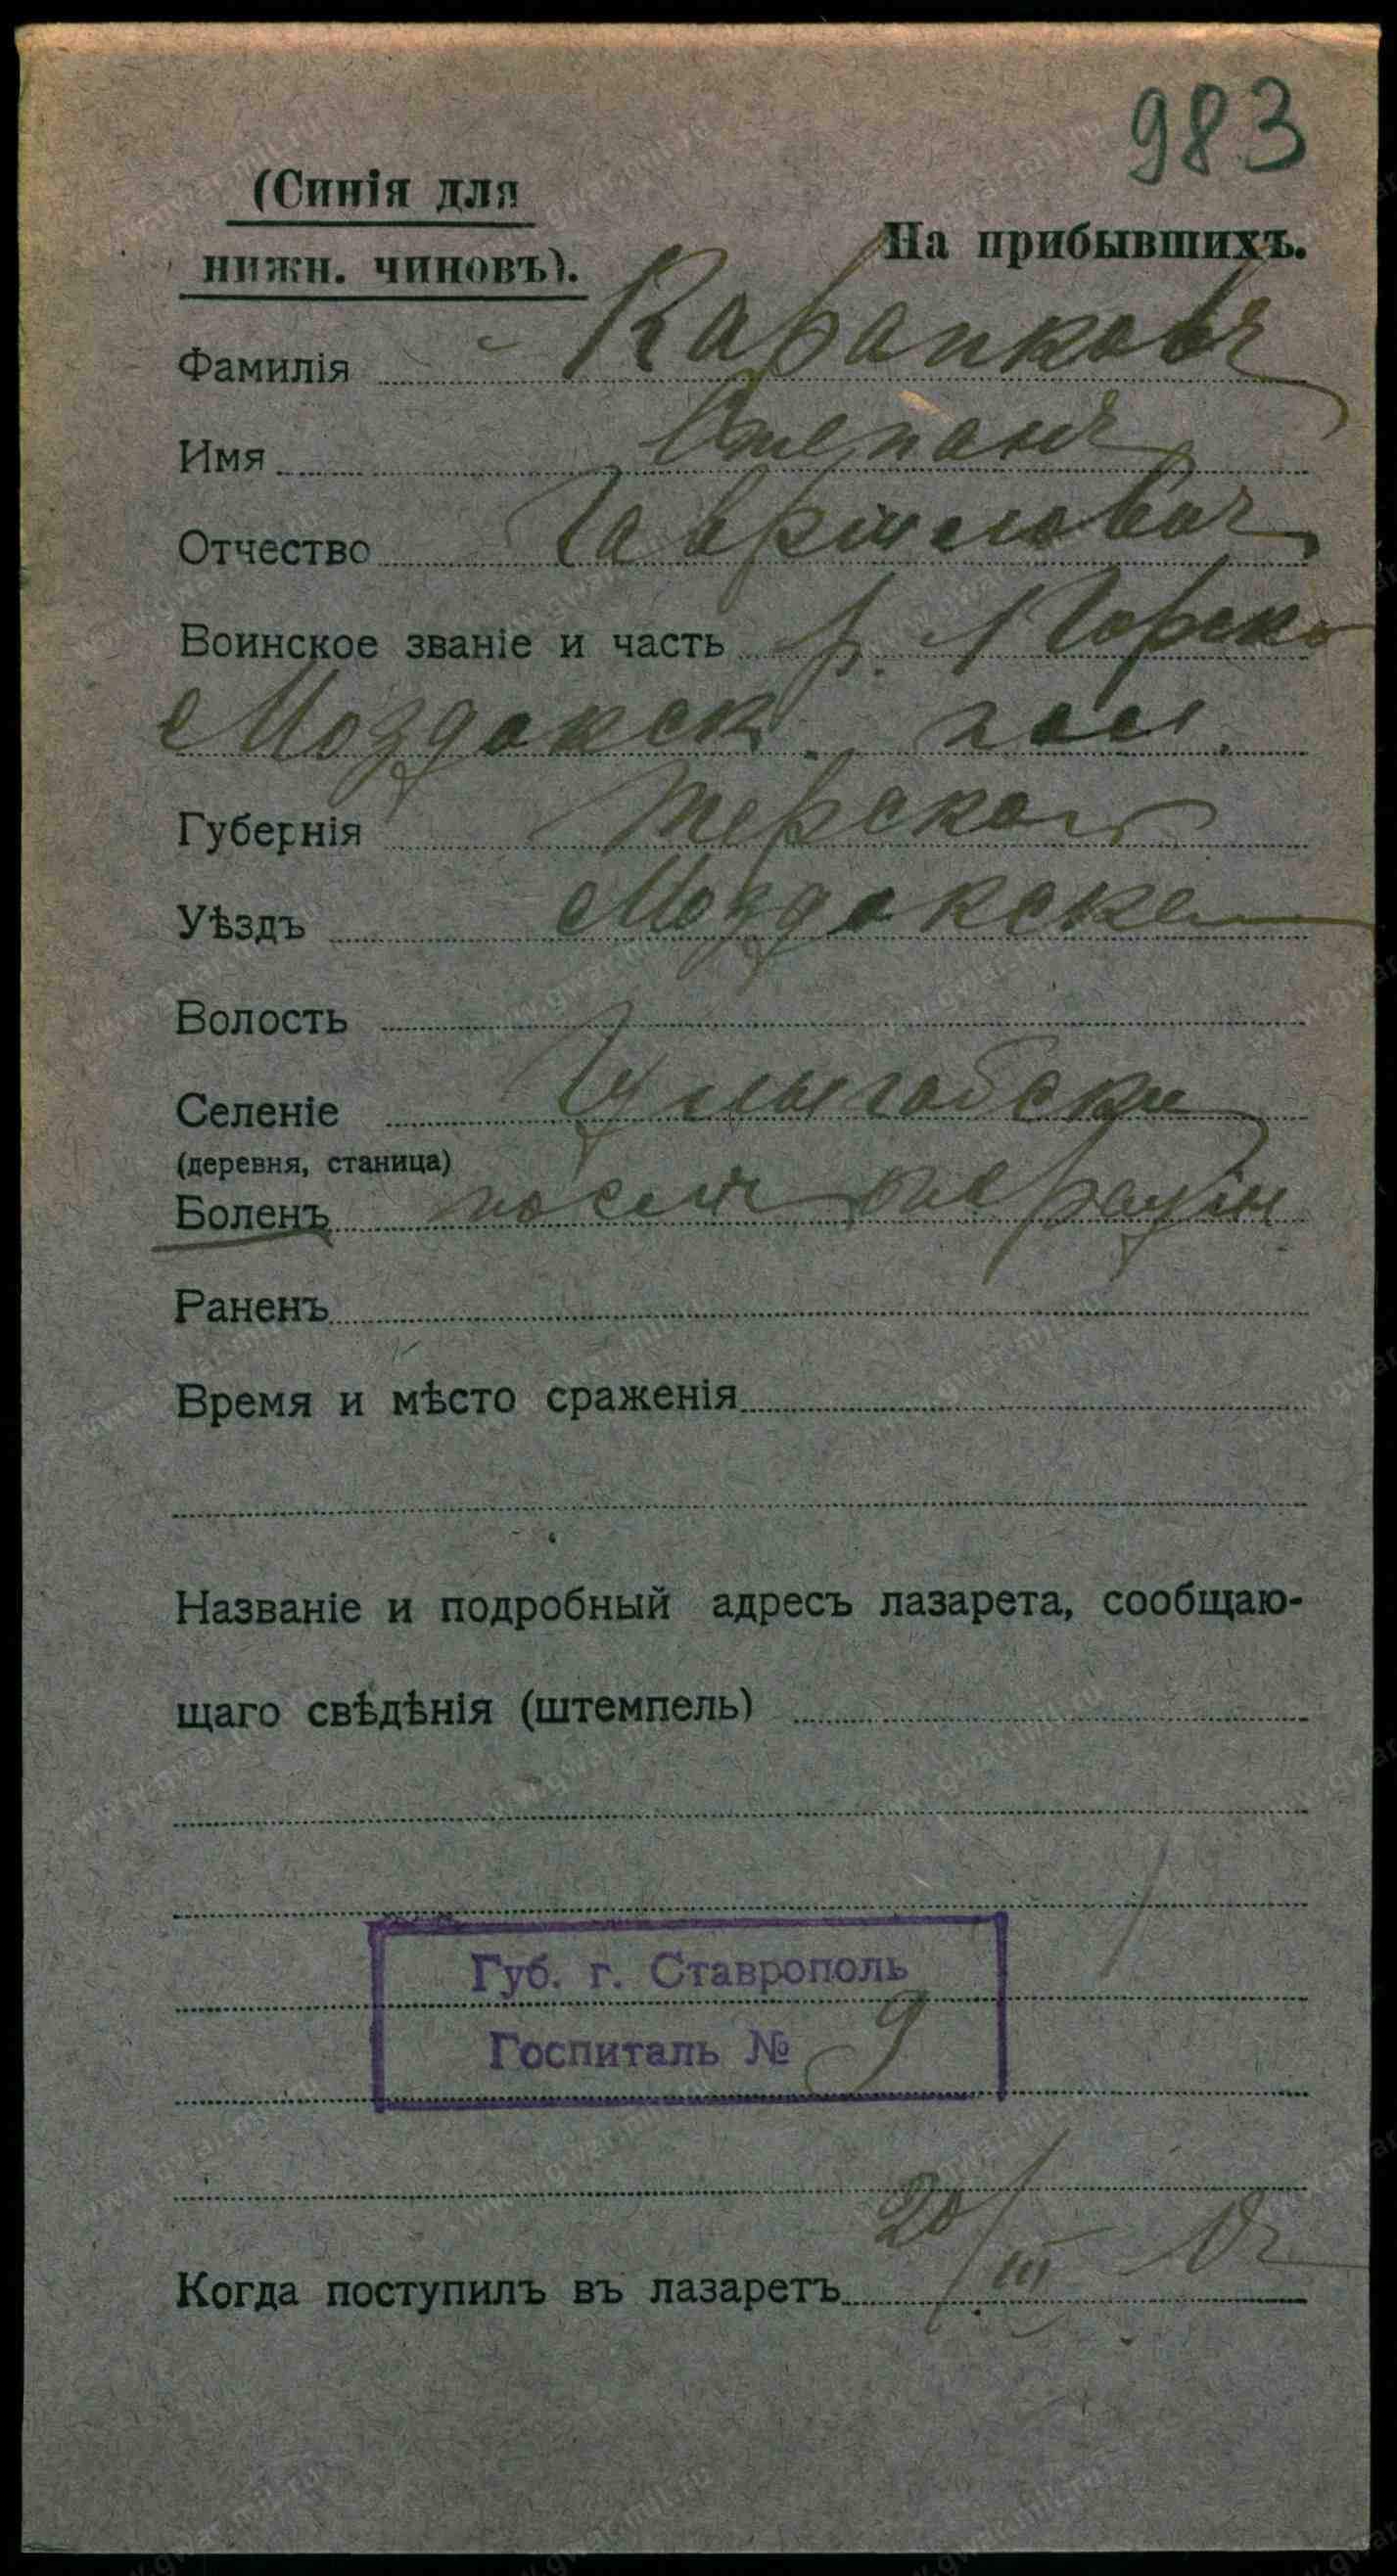 983
(Синія для
нижн. чиновъ).
На прибывшихъ.
Фамилія Карапковъ
Имя Степанъ
Отчество Гавриловъ
Воинское званіе и часть р. 1 Горско
Моздокск. пол.
Губернія Терской
Уѣздъ Моздокск
Волость
Селеніе
(деревня, станица)
Боленъ послѣ операціи
Раненъ
Время и мѣсто сраженія
Названіе и подробный адресъ лазарета, сообщаю-
щаго свѣдѣнія (штемпель)
Губ. г. Ставрополь
Госпиталь № 9
Когда поступилъ въ лазаретъ 20/III